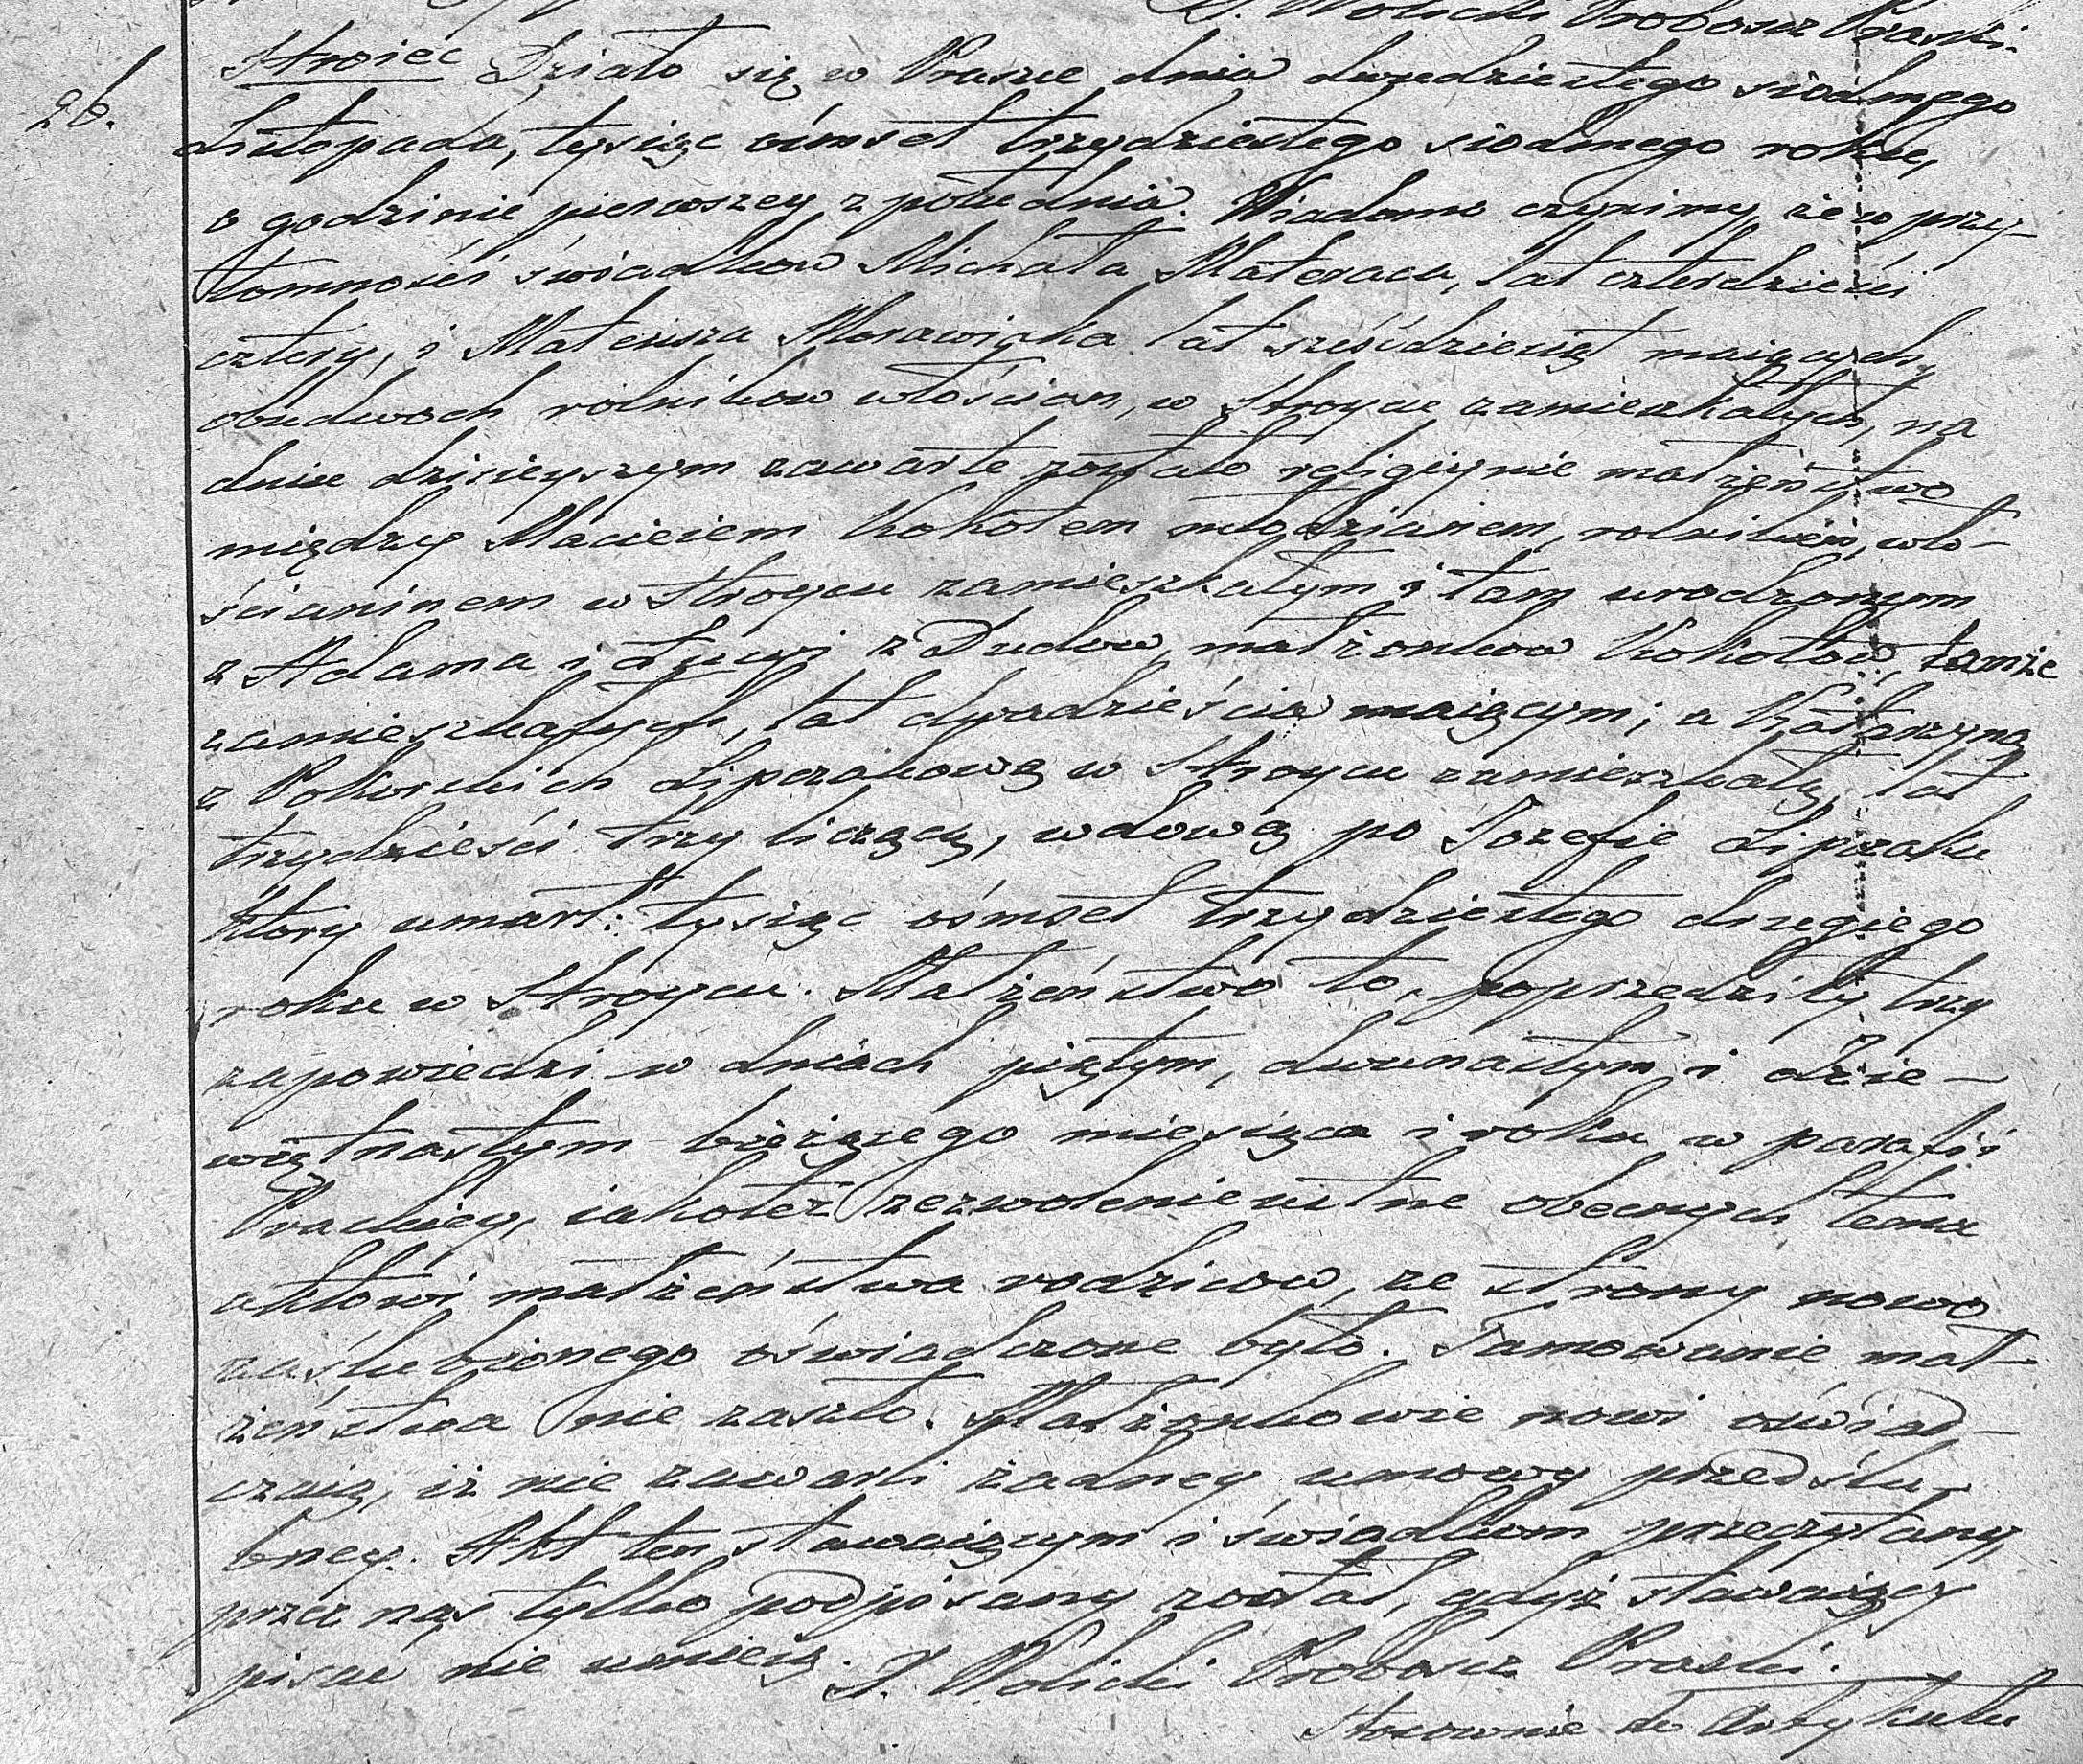 J. Wolicki Proboszcz Praski.
26.
Stroiec Działo się w Prasce dnia dwudziestego siodmego
Listopada, tysiąc ośmset trzydziestego siodmego roku,
o godzinie pierwszey z południa. Wiadomo czynimy, że w przy-
tomności świadkow Michała Materaca, lat czterdzieści
cztery, i Mateusza Morawiaka lat sześćdziesiąt maiących,
obudwoch rolnikow włościan, w Stroycu zamieszkałych, na
dniu dzisieyszym zawarte zostało religiynie małżeństwo
między Macieiem Kokotem młodzianem, rolnikiem, wło-
ścianinem w Stroycu zamieszkałym i tam urodzonym
z Adama i Łucyi z Dudow, małżonkow Kokotow, tamże
zamieszkałych, lat dwadzieścia maiącym; a Katarzyną
z Pokorskich Lipczakową w Stroycu zamieszkałą, lat
trzydzieści trzy liczącą, wdową po Jozefie Lipczaku
ktory umarł: tysiąc ośmset trzydziestego drugiego
roku w Stroycu. Małżeństwo to, poprzedziły trzy
zapowiedzi w dniach piątym, dwunastym i dzie-
więtnastym bieżącego miesiąca i roku w parafii
Praskiey, iakoteż zezwolenie ustne obecnych temu
aktowi małżeństwa rodzicow, ze strony nowo
zaślubionego oświadczone było. Tamowanie mał-
żeństwa nie zaszło. Małżonkowie nowi oświad-
czaią, iż nie zawarli żadney umowy przedślu-
bney. Akt ten stawaiącym i świadkom przeczytany,
przez nas tylko podpisany został, gdyż stawaiący
pisać nie umieią. J. Wolicki Proboszcz Praski.
Stosownie do Artykułu